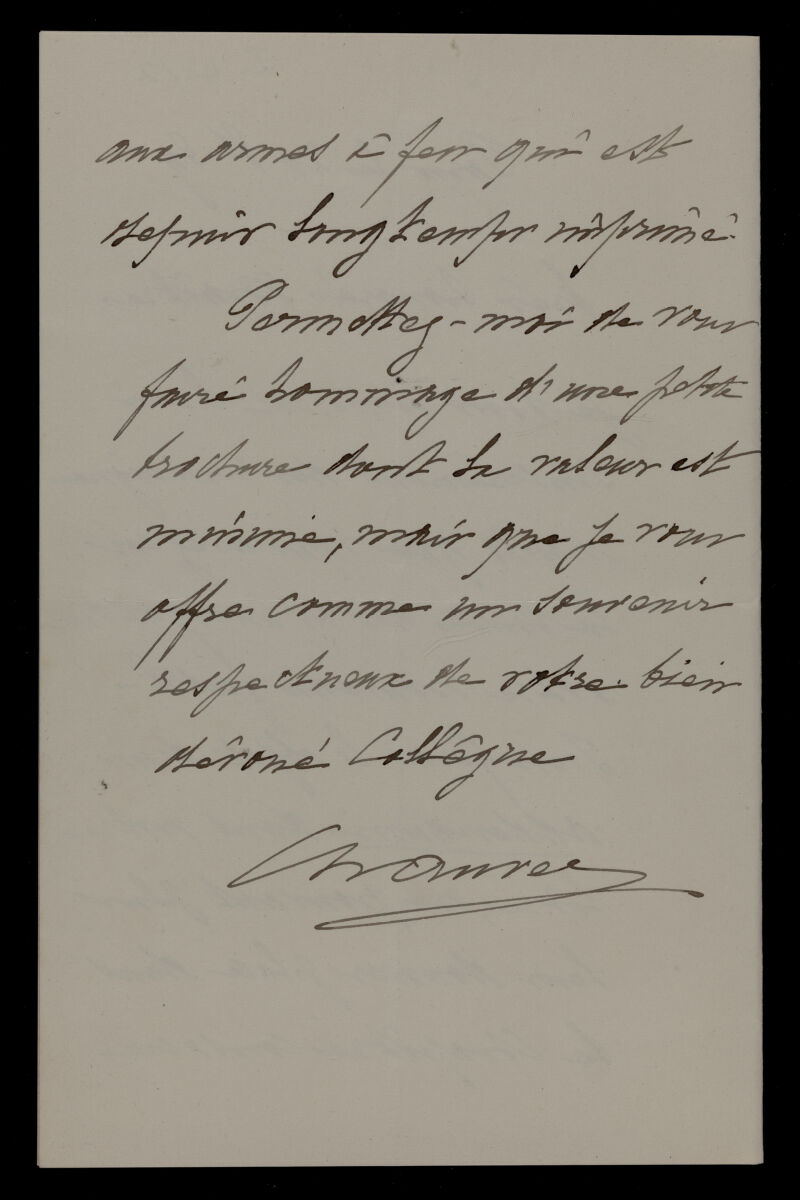 aux armes à feu qui est
depuis longtemps imprimé.
Permettez-moi de vous
faire hommage d'une petite
brochure dont la valeur est
minime, mais que je vous
offre comme un souvenir
respectueux de votre bien
dévoué Collègue
Chauvel